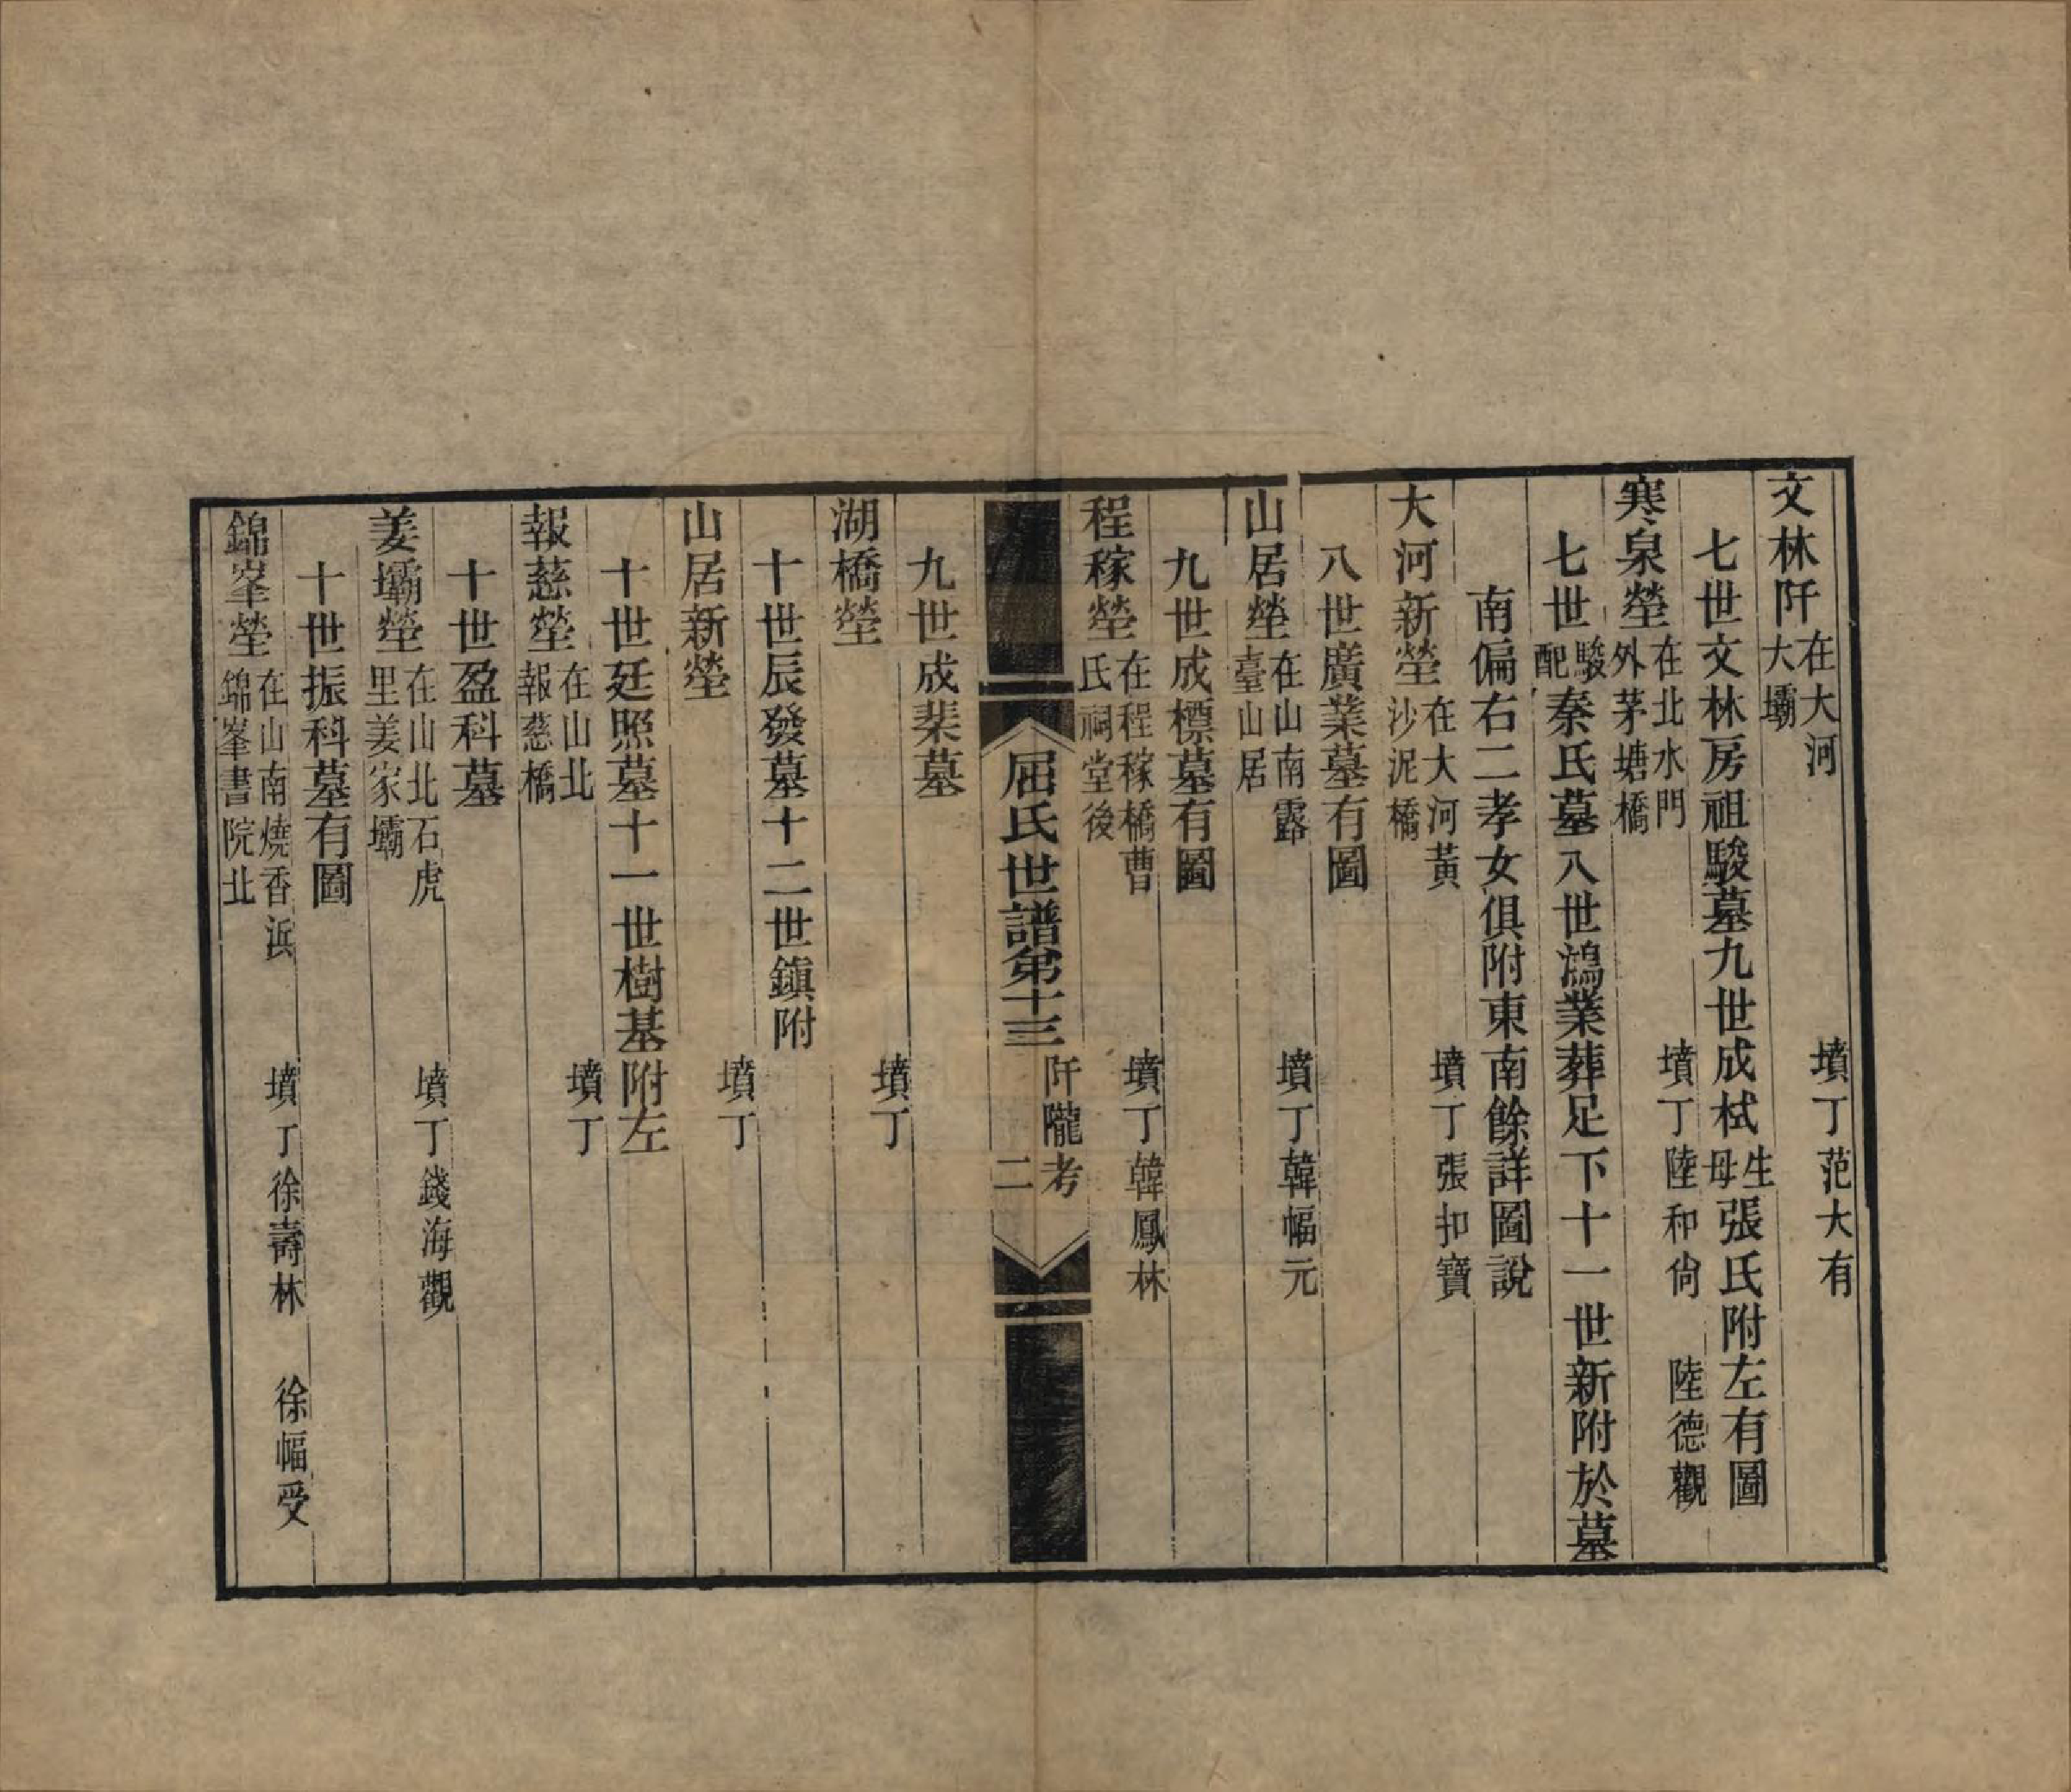 文林阡在大河大壩　墳丁范大有
七世文林房祖駿墓九世成栻生母張氏附左有圖
寒泉塋在北水門外茅塘橋　墳丁陸和尙　陸德觀
七世駿配秦氏墓八世鴻業葬足下十一世新附於墓
南偏右二孝女俱附東南餘詳圖說
大河新塋在大河黃沙泥橋　墳丁張扣寶
八世廣業墓有圖
山居塋在山南露臺山居　墳丁韓幅元
九世成標墓有圖
程稼塋在程稼橋曹氏祠堂後　墳丁韓鳳林
屈氏世譜弟十三　阡隴考　二
九世成棐墓
湖橋塋　墳丁
十世辰發墓十二世鎮附
山居新塋　墳丁
十世廷照墓十一世樹基附左
報慈塋在山北報慈橋　墳丁
十世盈科墓
姜壩塋在山北石虎里姜家壩　墳丁錢海觀
十世振科墓有圖
錦峯塋在山南燒香浜錦峯書院北　墳丁徐壽林　徐幅受